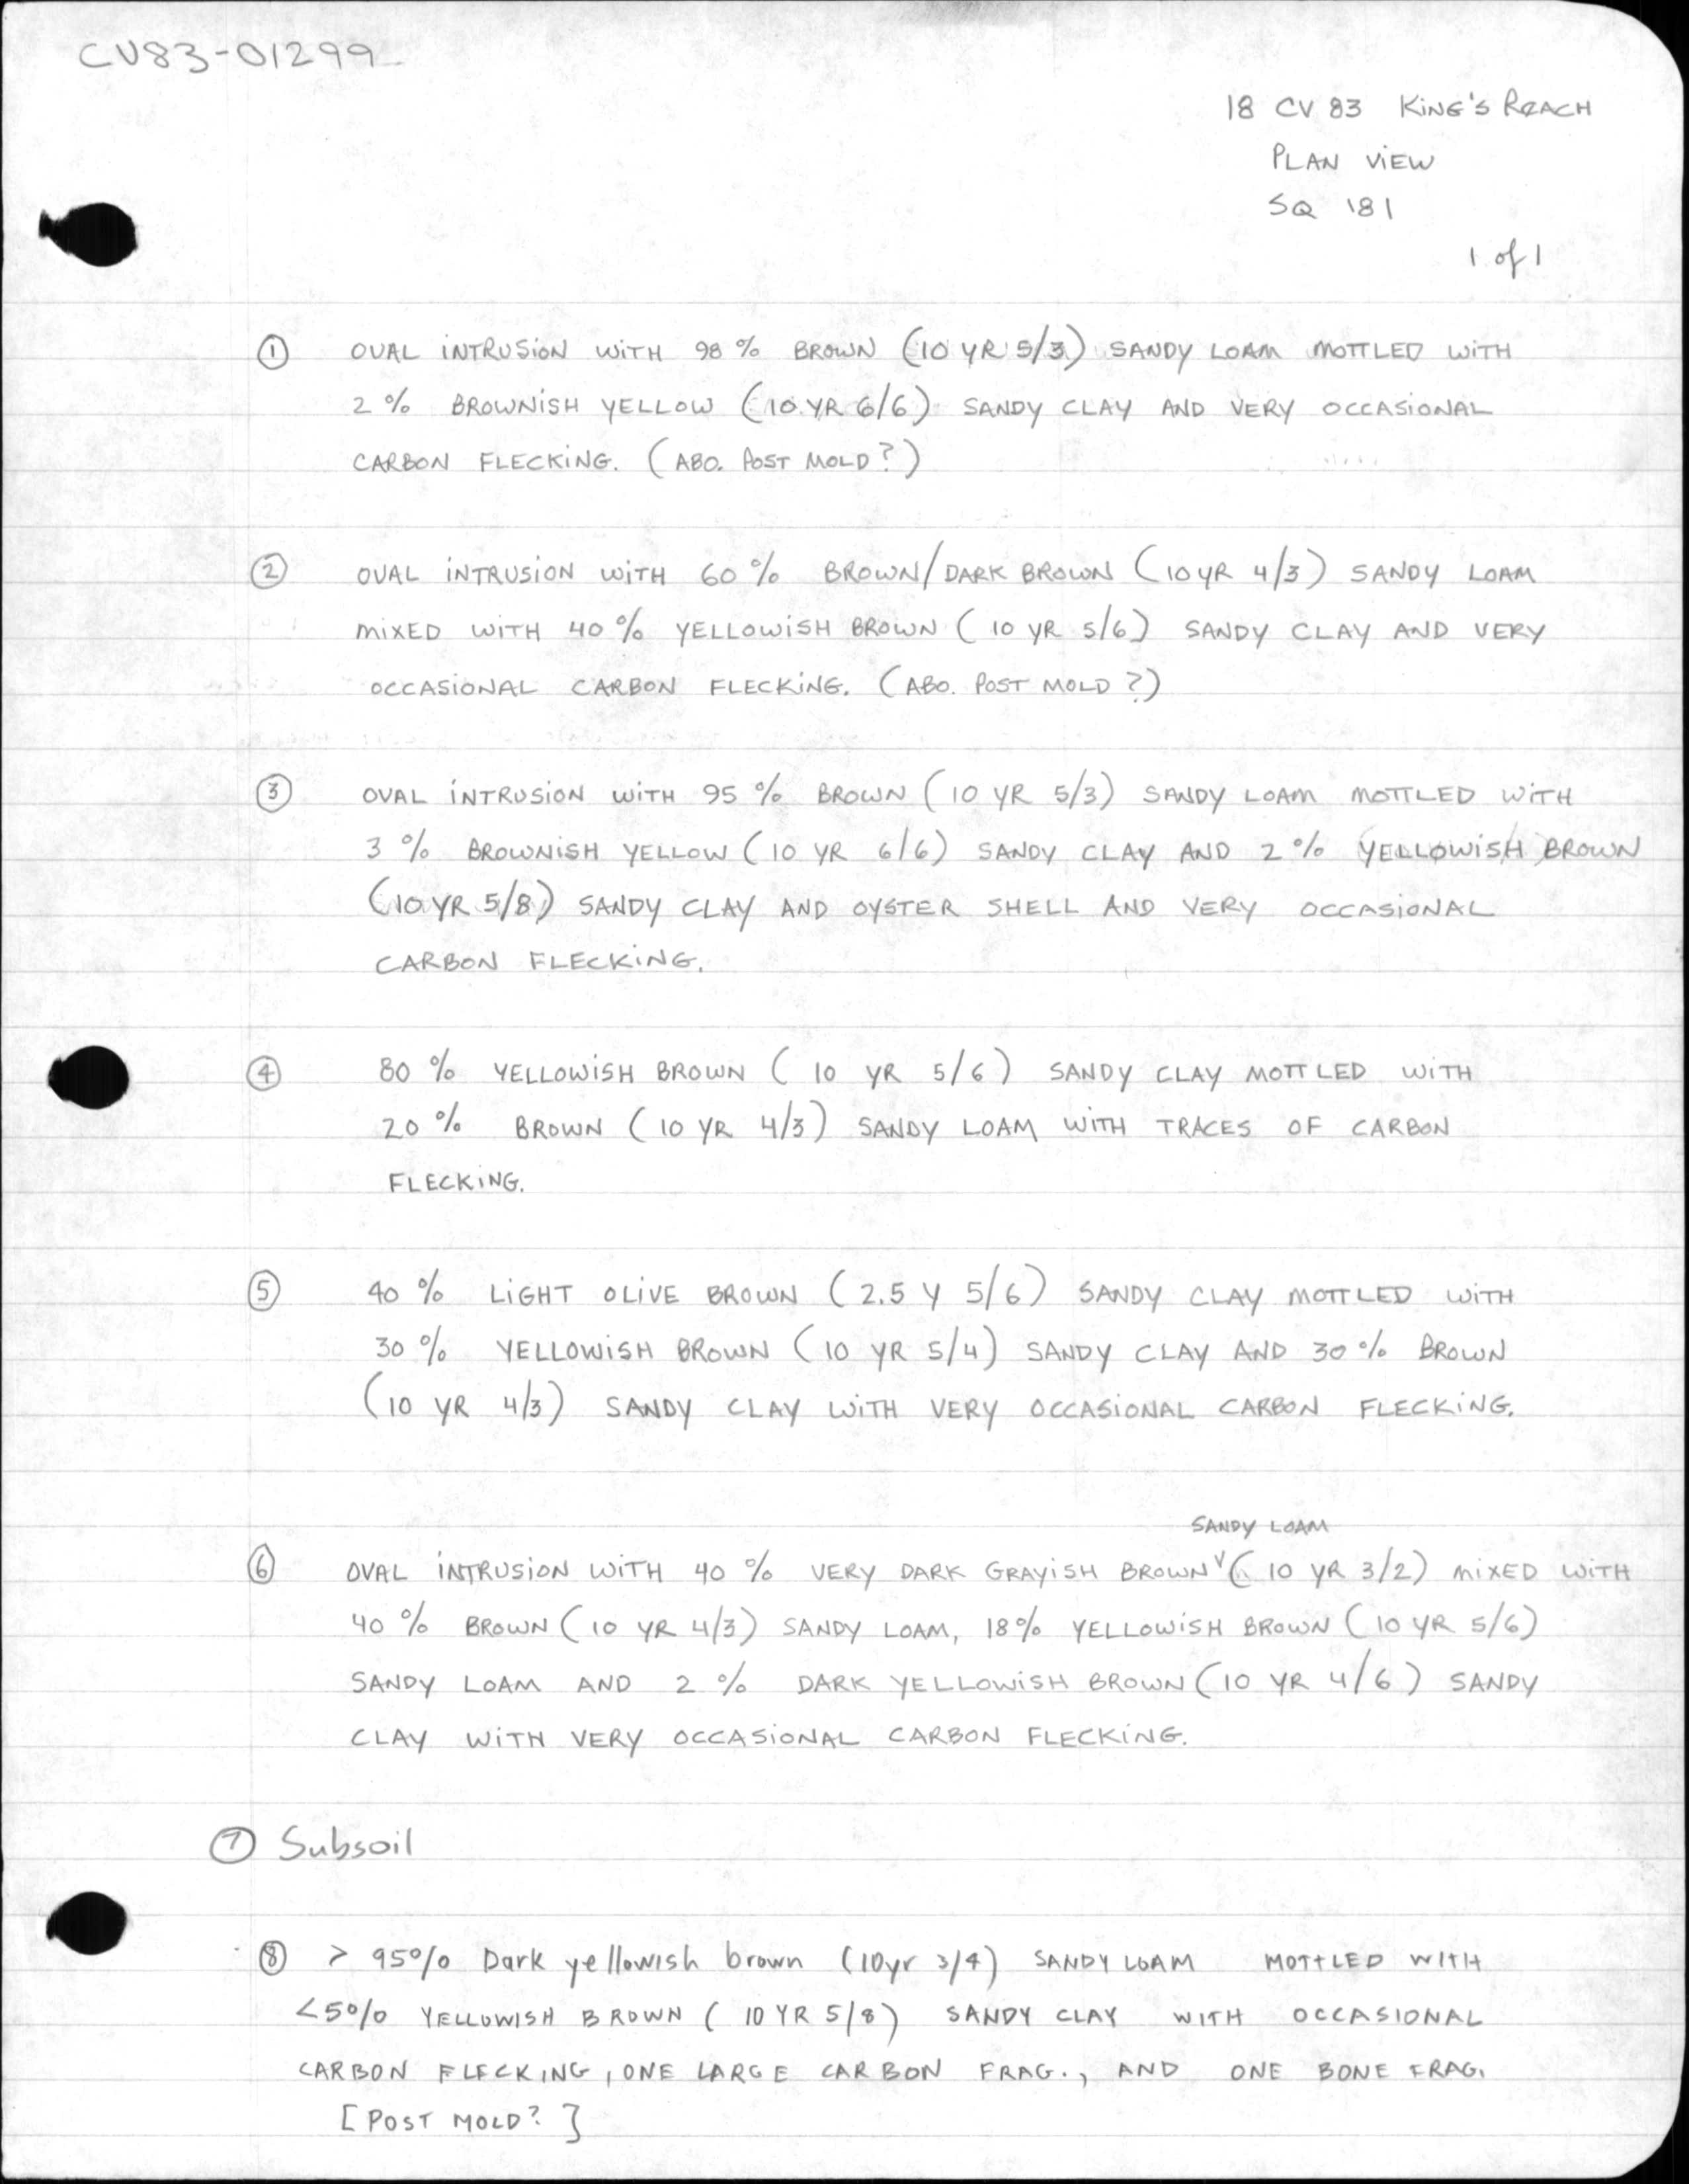 CV83-01299
18 CV 83 KING'S REACH
PLAN VIEW
SQ 181
1 of 1
① OVAL INTRUSION WITH 98 % BROWN (10 YR 5/3) SANDY LOAM MOTTLED WITH
2 % BROWNISH YELLOW (10 YR 6/6) SANDY CLAY AND VERY OCCASIONAL
CARBON FLECKING. (ABO. POST MOLD?)
② OVAL INTRUSION WITH 60 % BROWN/DARK BROWN (10 YR 4/3) SANDY LOAM
MIXED WITH 40 % YELLOWISH BROWN (10 YR 5/6) SANDY CLAY AND VERY
OCCASIONAL CARBON FLECKING. (ABO. POST MOLD?)
③ OVAL INTRUSION WITH 95 % BROWN (10 YR 5/3) SANDY LOAM MOTTLED WITH
3 % BROWNISH YELLOW (10 YR 6/6) SANDY CLAY AND 2 % YELLOWISH BROWN
(10 YR 5/8) SANDY CLAY AND OYSTER SHELL AND VERY OCCASIONAL
CARBON FLECKING.
④ 80 % YELLOWISH BROWN (10 YR 5/6) SANDY CLAY MOTTLED WITH
20 % BROWN (10 YR 4/3) SANDY LOAM WITH TRACES OF CARBON
FLECKING.
⑤ 40 % LIGHT OLIVE BROWN (2.5 Y 5/6) SANDY CLAY MOTTLED WITH
30 % YELLOWISH BROWN (10 YR 5/4) SANDY CLAY AND 30 % BROWN
(10 YR 4/3) SANDY CLAY WITH VERY OCCASIONAL CARBON FLECKING.
SANDY LOAM
⑥ OVAL INTRUSION WITH 40 % VERY DARK GRAYISH BROWN ˅ (10 YR 3/2) MIXED WITH
40 % BROWN (10 YR 4/3) SANDY LOAM, 18 % YELLOWISH BROWN (10 YR 5/6)
SANDY LOAM AND 2 % DARK YELLOWISH BROWN (10 YR 4/6) SANDY
CLAY WITH VERY OCCASIONAL CARBON FLECKING.
⑦ Subsoil
⑧ > 95% Dark yellowish brown (10yr 3/4) SANDY LOAM MOTTLED WITH
<5% YELLOWISH BROWN (10 YR 5/8) SANDY CLAY WITH OCCASIONAL
CARBON FLECKING, ONE LARGE CARBON FRAG., AND ONE BONE FRAG.
[POST MOLD?]